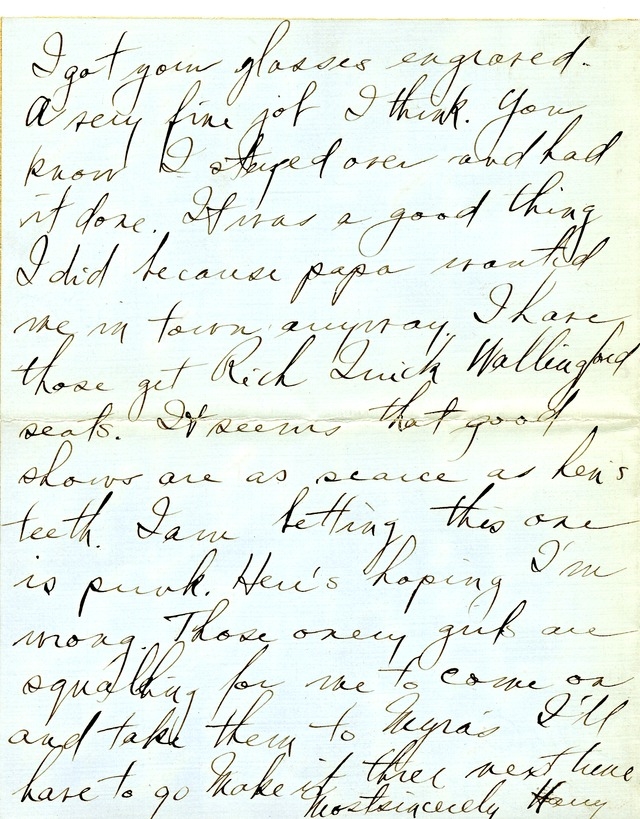 I got your glasses engraved.
A very fine job I think. You
know I stayed over and had
it done. It was a good thing
I did because papa wanted
me in town anyway. I have
those get Rich Quick Wallingford
seats. It seems that good
shows are as scarce as hen's
teeth. I am betting this one
is punk. Here's hoping I'm
wrong. Those onery girls are
squalling for me to come on
and take them to Myra's I'll
have to go Make it three next time
Most sincerely Harry